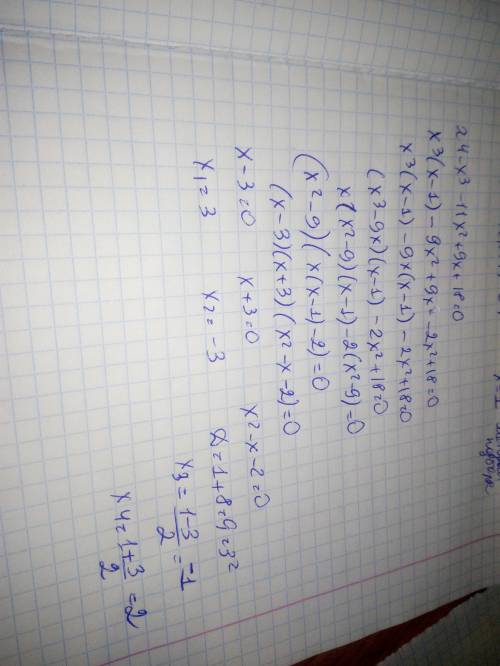 x⁴-x³-11x²+9x+18=0
x³(x-1)-9x²+9x-2x²+18=0
x³(x-1)-9x(x-1)-2x²+18=0
(x³-9x)(x-1)-2x²+18=0
x(x²-9)(x-1)-2(x²-9)=0
(x²-9)(x(x-1)-2)=0
(x-3)(x+3)(x²-x-2)=0
x-3=0 x+3=0 x²-x-2=0
x₁=3 x₂=-3 D=1+8=9=3²
x₃=\frac{1-3}{2}=-1
x₄=\frac{1+3}{2}=2